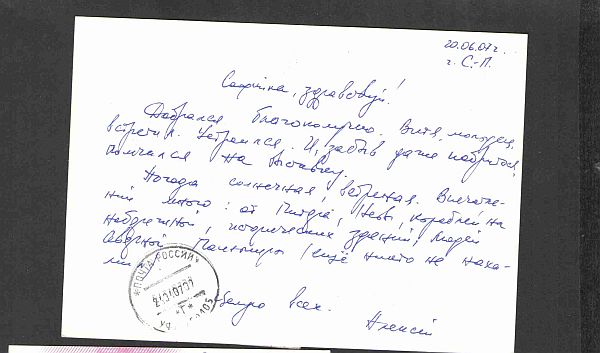 20.06.07 г.
г. С.-П.
Софийка, здравствуй!
Добрался благополучно. Витя, молодец,
встретил. Устроился. И, забыв даже побриться,
помчался на
Погода солнечная, ветреная. Впечатле-
ний много: от Питера, Невы, кораблей на
набережной, исторических зданий, людей
озёрной Пальмиры (ещё никто не наха-
мил
всех.
Алексей
*ПОЧТА РОССИИ*
*Г*